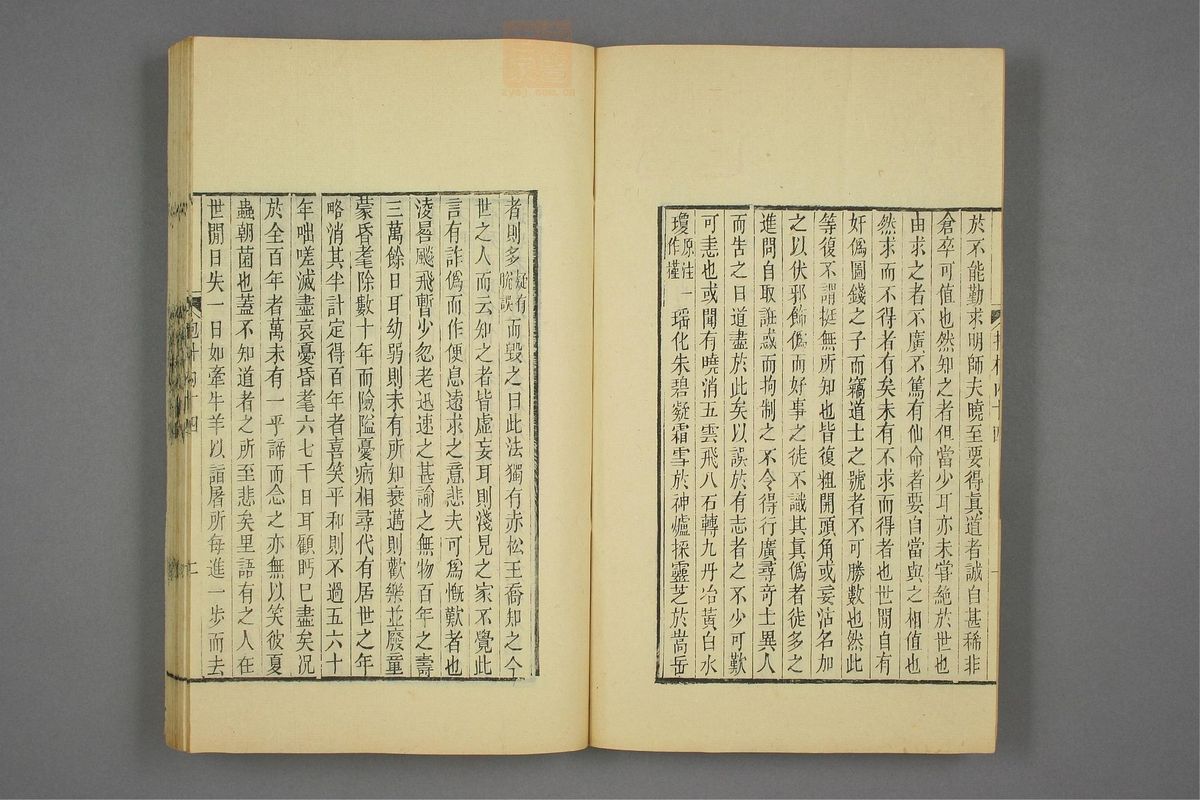 於不能勤求明師夫曉至要得眞道者誠自甚稀非
倉卒可值也然知之者但當少耳亦未嘗絶於世也
由求之者不廣不篤有仙命者要自當與之相值也
然求而不得者有矣未有不求而得者也世閒自有
奸僞圖錢之子而竊道士之號者不可勝數也然此
等復不謂挺無所知也皆復粗開頭角或妄沽名加
之以伏邪飾僞而好事之徒不識其眞僞者徒多之
進問自取誑惑而拘制之不令得行廣尋奇士異人
而告之曰道盡於此矣以誤於有志者之不少可歎
可恚也或聞有曉消五雲飛八石轉九丹冶黃白水
瓊原注一作瓘瑤化朱碧凝霜雪於神爐採靈芝於嵩岳
者則多疑有脫誤而毀之曰此法獨有赤松王喬知之今
世之人而云知之者皆虛妄耳則淺見之家不覺此
言有詐僞而作便息遠求之意悲夫可爲慨歎者也
淩晷飇飛暫少忽老迅速之甚諭之無物百年之壽
三萬餘日耳幼弱則未有所知衰邁則歡樂並廢童
蒙昏耄除數十年而險隘憂病相尋代有居世之年
略消其半計定得百年者喜笑平和則不過五六十
年咄嗟滅盡哀憂昏耄六七千日耳顧眄已盡矣况
於全百年者萬未有一乎諦而念之亦無以笑彼夏
蟲朝菌也蓋不知道者之所至悲矣里語有之人在
世閒日失一日如牽牛羊以詣屠所每進一步而去